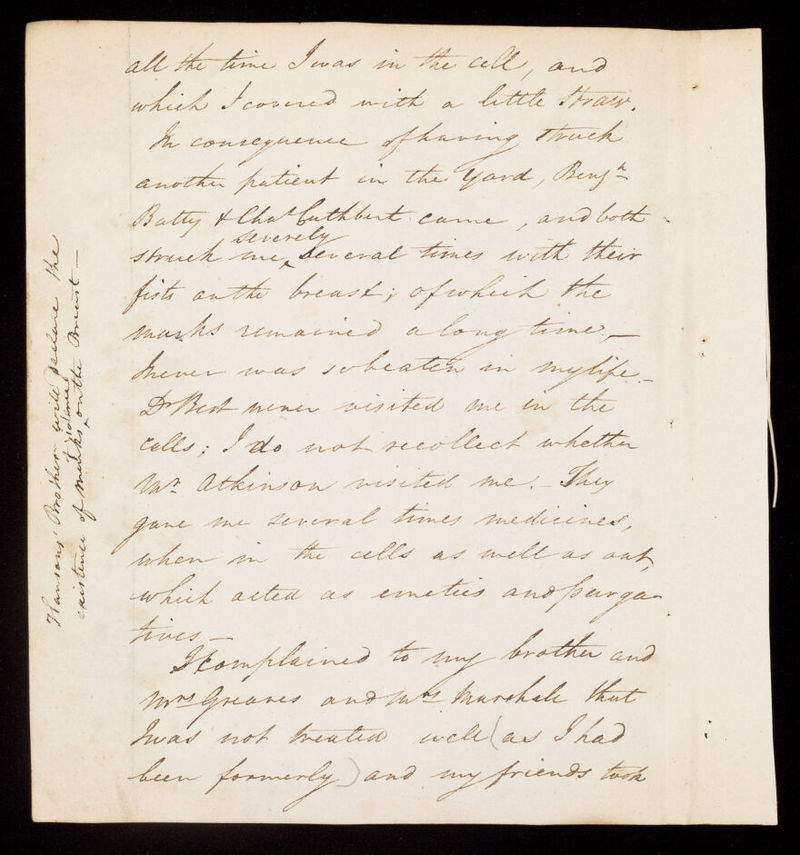 all the time I was in the cell, and
which I covered with a little straw.
In consequence of having struck
another patient in the Yard, Benjn
Batty & Chas Cuthbert came, and both
severely
struck me, several times with their
fists on the breast; of which the
marks remained a long time. —
Never was so beaten in my life —
Dr Best never visited me in the
Cells; I do not recollect whether
Mr. Atkinson visited me. — They
gave me several times medicines,
when in the cells as well as out,
which acted as emetics and purga-
tives —
I complained to my brother and
Mrs Greaves and Mrs Marshall that
I was not treated well (as I had
been formerly) and my friends took
Hansons Brother will declare the
existence of marks on the Breast —